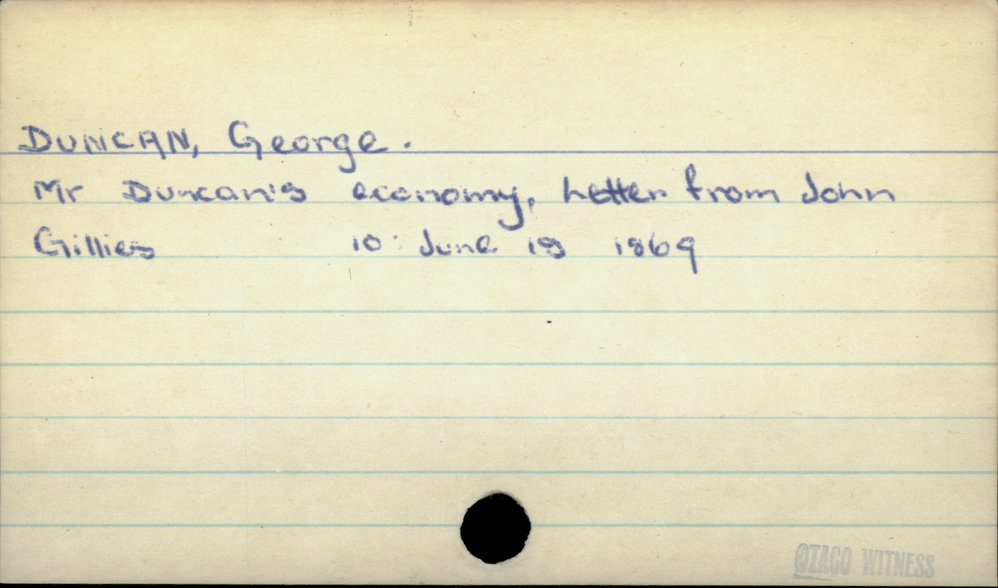 DUNCAN, George.
Mr Duncan's economy, Letter from John
Gillies 10: June 19 1869
OTAGO WITNESS